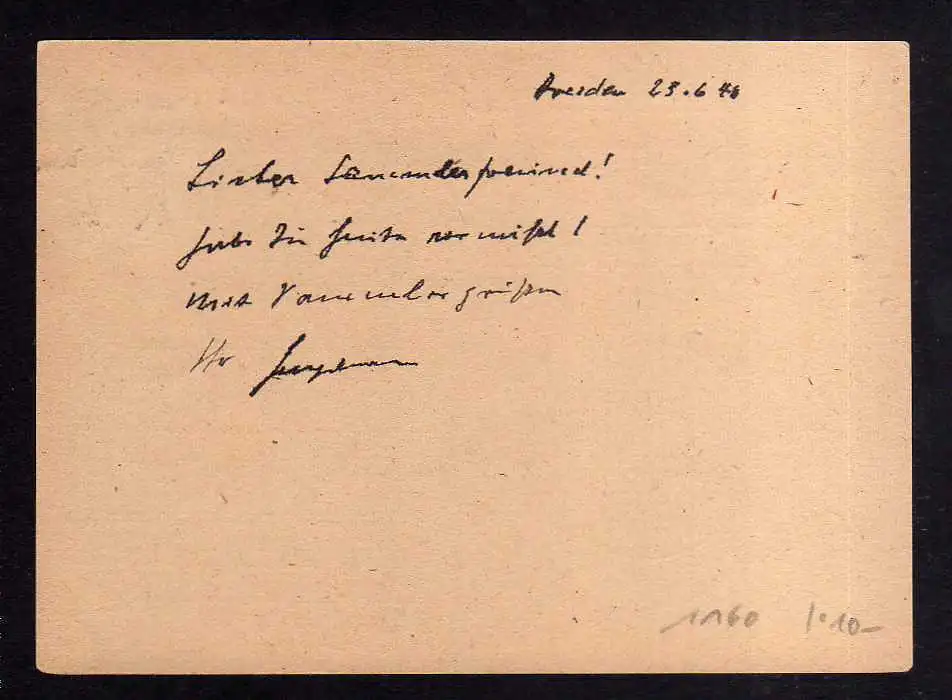 Dresden 23.6.48
Lieber Sammlerfreund!
habe Sie heute vermißt!
Mit Sammlergrüßen
Ihr